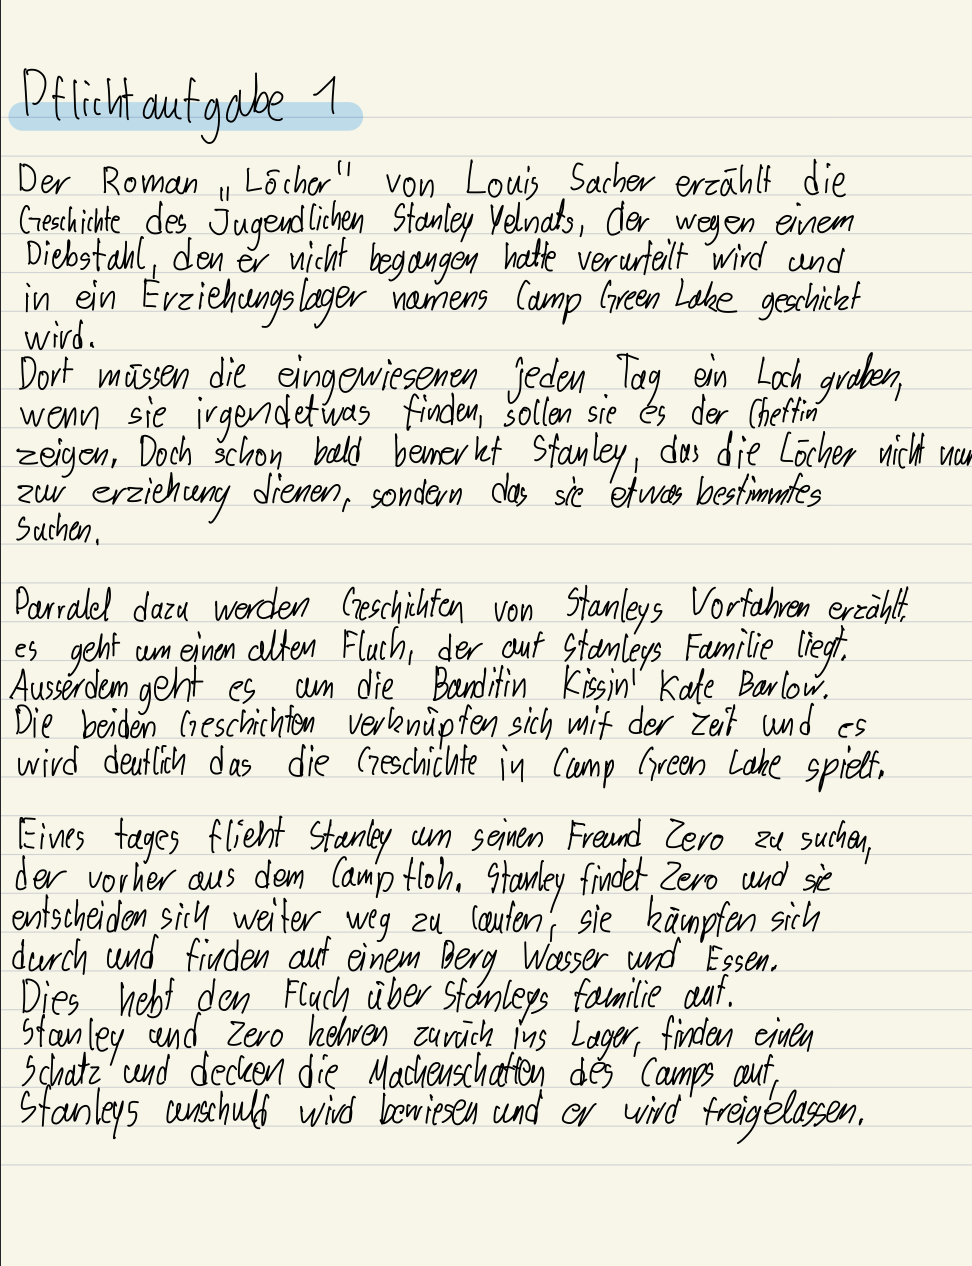 Pflichtaufgabe 1
Der Roman „Löcher" von Louis Sacher erzählt die
Geschichte des Jugendlichen Stanley Yelnats, der wegen einem
Diebstahl, den er nicht begangen hatte verurteilt wird und
in ein Erziehungslager namens Camp Green Lake geschickt
wird.
Dort müssen die eingewiesenen jeden Tag ein Loch graben,
wenn sie irgendetwas finden, sollen sie es der Cheffin
zeigen. Doch schon bald bemerkt Stanley, das die Löcher nicht nur
zur erziehung dienen, sondern das sie etwas bestimmtes
Suchen.
Parralel dazu werden Geschichten von Stanleys Vorfahren erzählt,
es geht um einen alten Fluch, der auf Stanleys Familie liegt.
Ausserdem geht es um die Banditin Kissin' Kate Barlow.
Die beiden Geschichten verknüpfen sich mit der Zeit und es
wird deutlich das die Geschichte in Camp Green Lake spielt.
Eines tages flieht Stanley um seinen Freund Zero zu suchen,
der vorher aus dem Camp floh. Stanley findet Zero und sie
entscheiden sich weiter weg zu laufen, sie kämpfen sich
durch und finden auf einem Berg Wasser und Essen.
Dies hebt den Fluch über Stanleys familie auf.
Stanley und Zero kehren zurück ins Lager, finden einen
Schatz und decken die Machenschaften des Camps auf,
Stanleys unschuld wird bewiesen und er wird freigelassen.